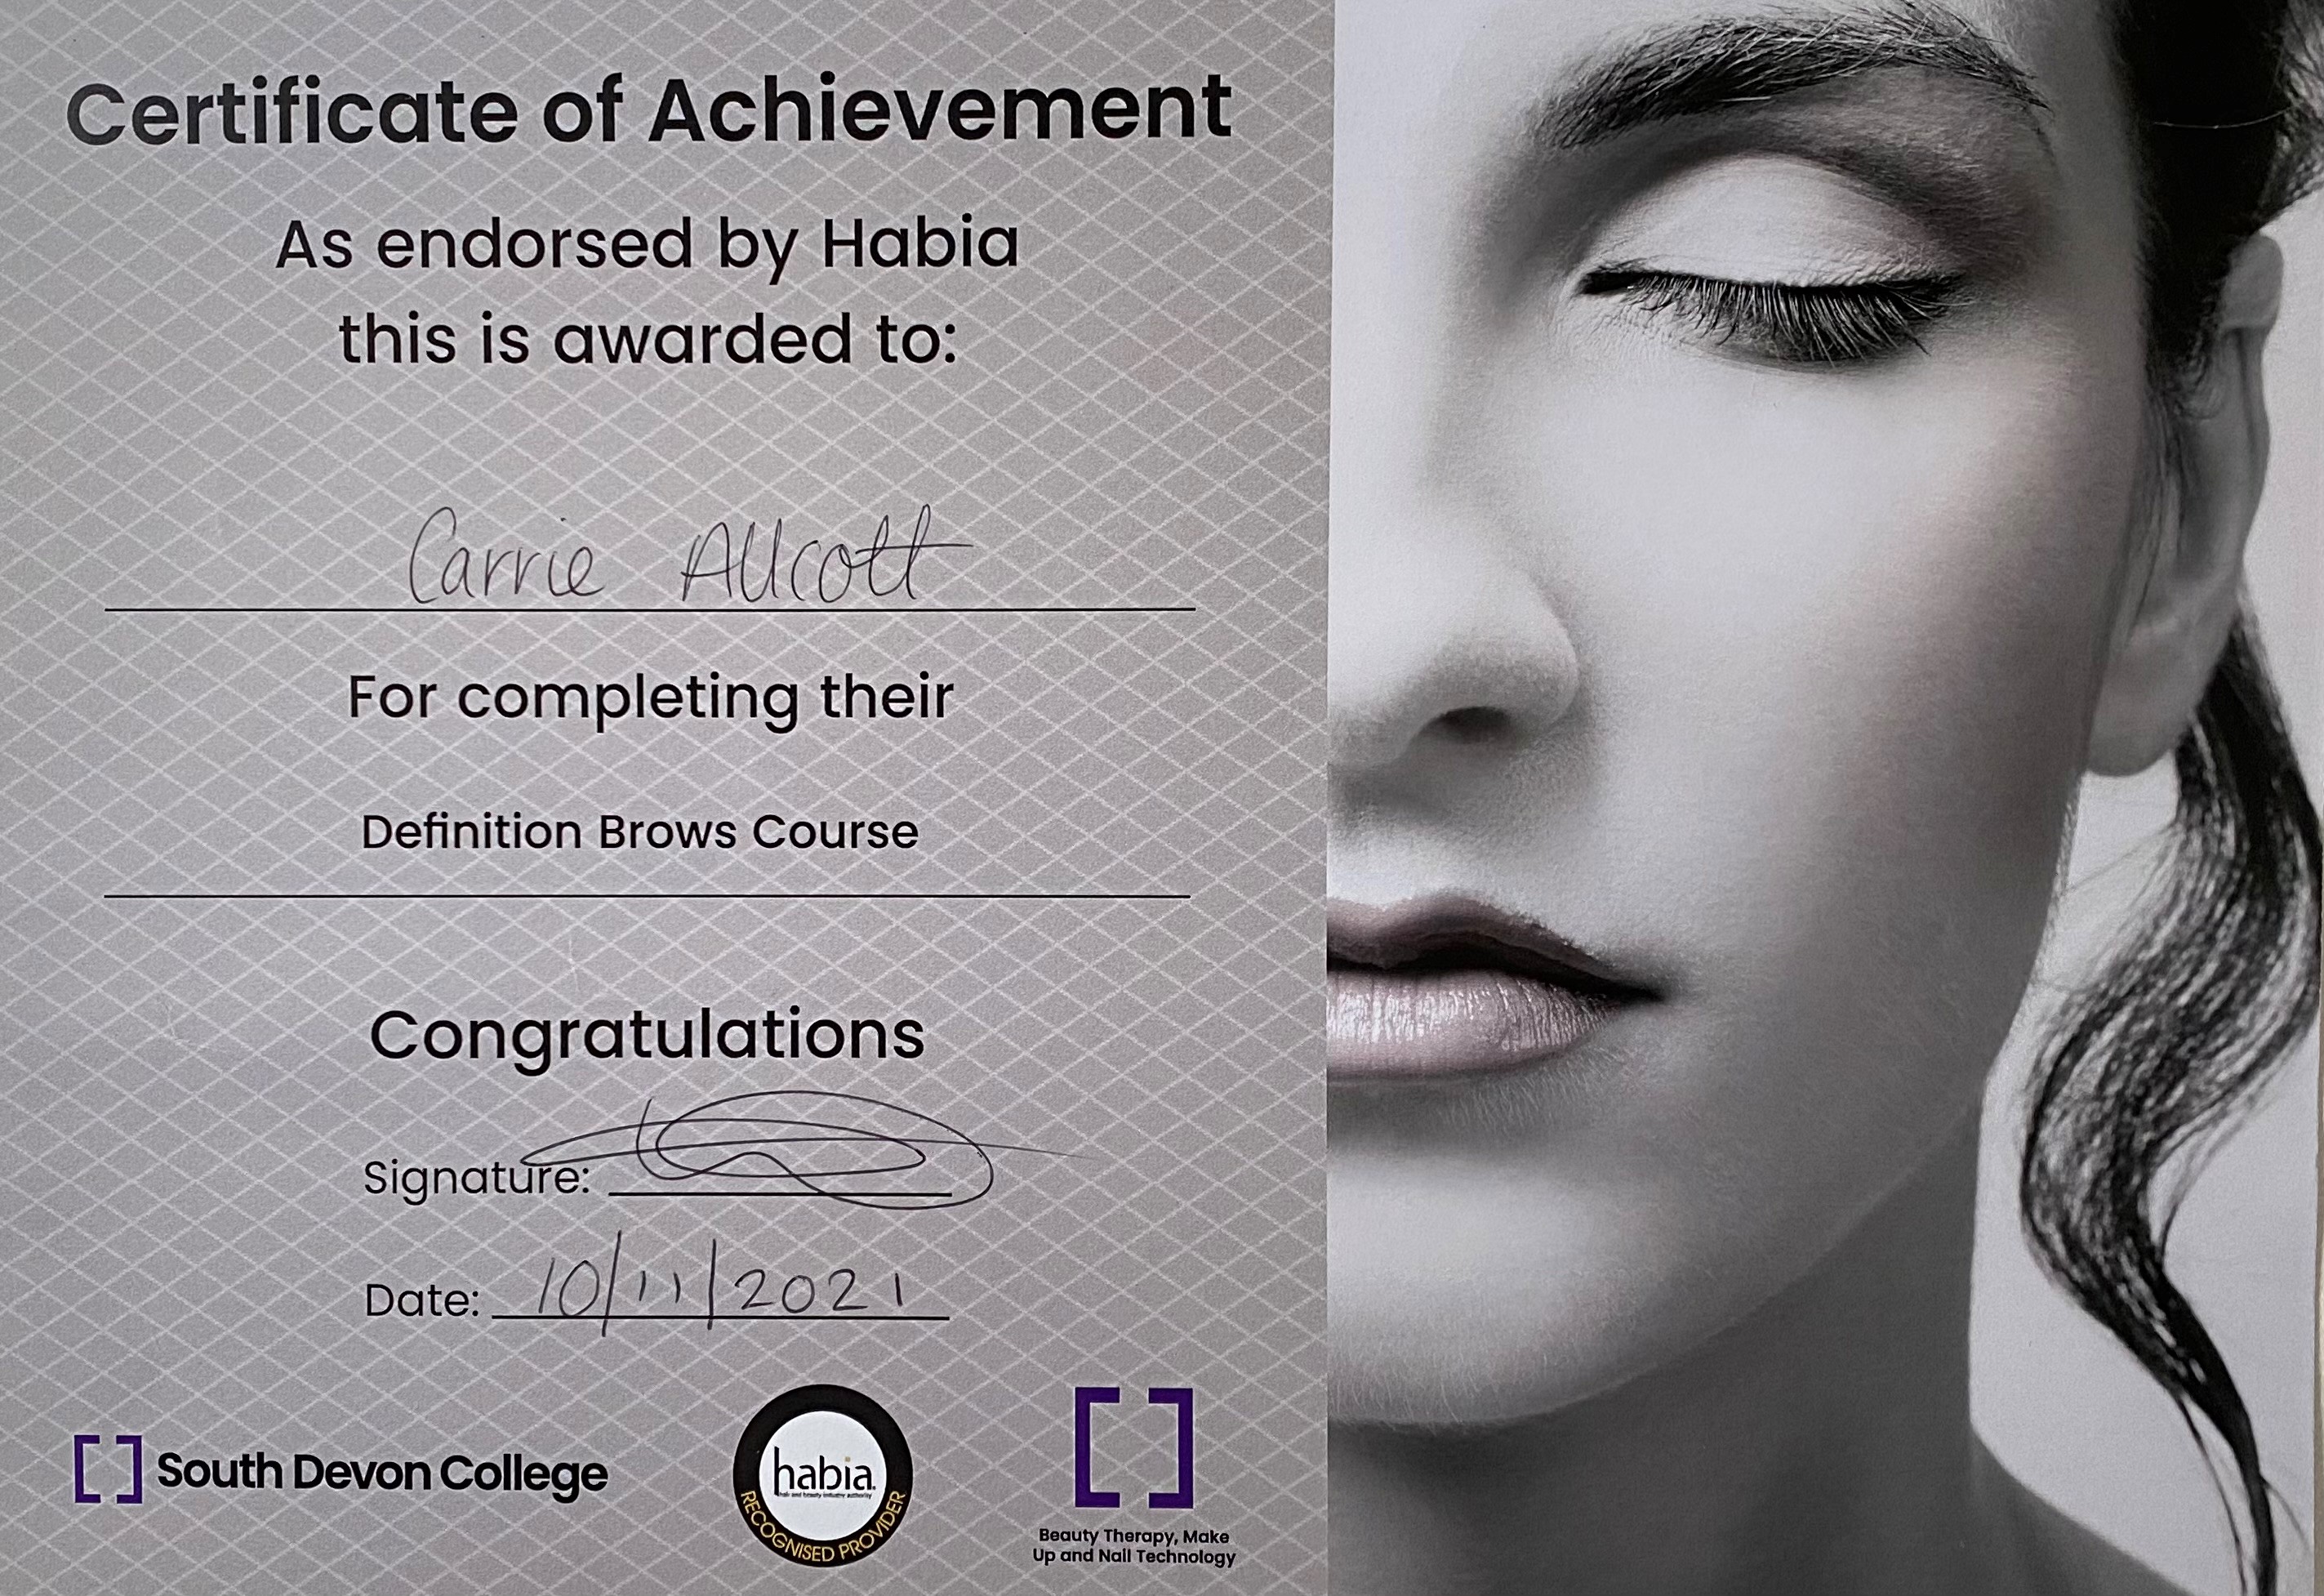 Certificate of Achievement
As endorsed by Habia
this is awarded to:
Carrie Allcott
For completing their
Definition Brows Course
Congratulations
Signature:
Date: 10/11/2021
South Devon College
habia
hair and beauty industry authority
RECOGNISED PROVIDER
Beauty Therapy, Make
Up and Nail Technology